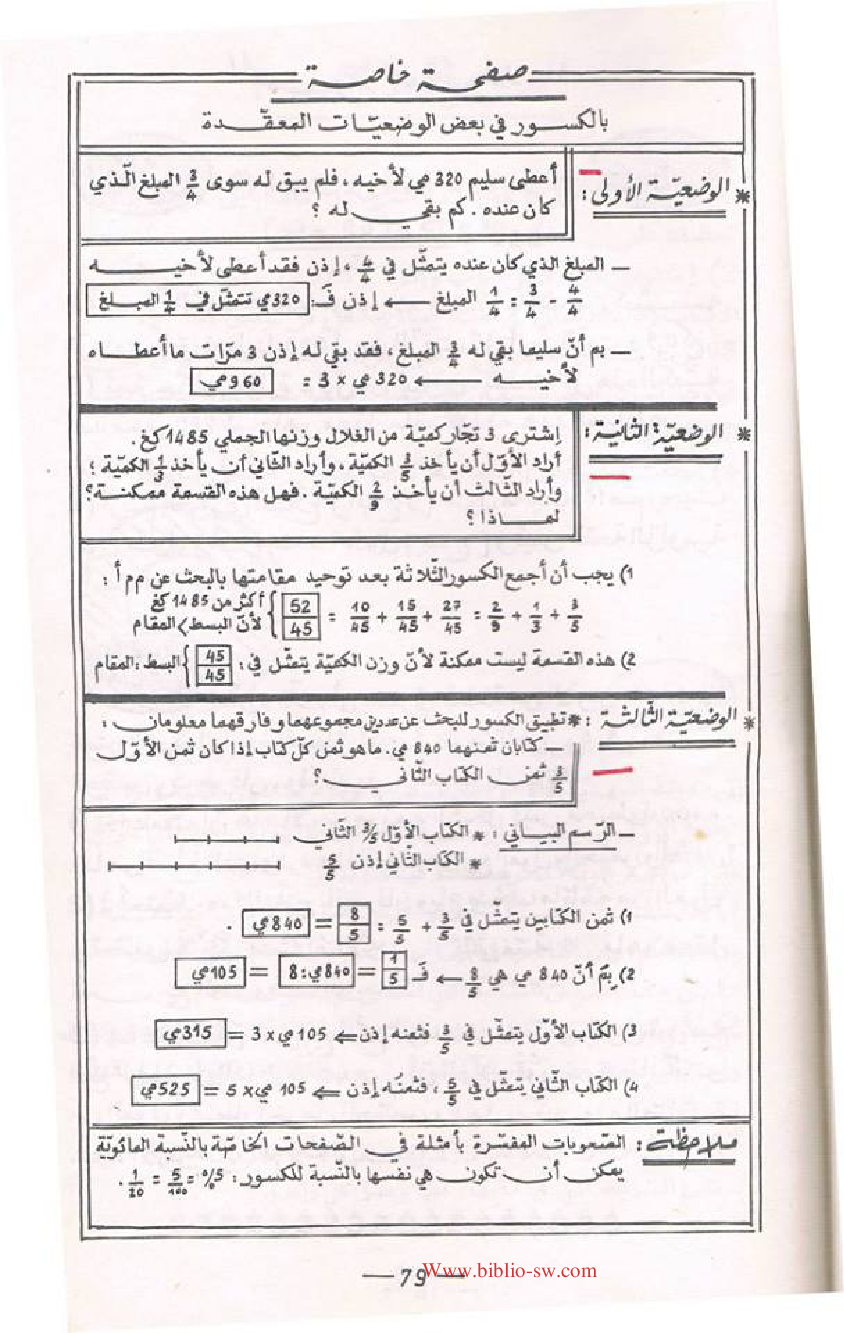 صفحة خاصة
بالكسور في بعض الوضعيّات المعقّدة
* الوضعيّة الأولى :
أعطى سليم 320 مي لأخيه ، فلم يبق له سوى 3/4 المبلغ الّذي
كان عنده . كم بقي له ؟
— المبلغ الذي كان عنده يتمثّل في 4/4 ، إذن فقد أعطى لأخيه
4/4 - 3/4 = 1/4 المبلغ ← إذن فَـ : 320 مي تتمثّل في 1/4 المبلغ
— بم أنّ سليما بقي له 3/4 المبلغ ، فقد بقي له إذن 3 مرّات ما أعطاه
لأخيه ← 320 مي x 3 = 960 مي
* الوضعيّة الثانية :
إشترى 3 تجّار كميّة من الغلال وزنها الجملي 1485 كغ .
أراد الأوّل أن يأخذ 3/5 الكميّة ، وأراد الثّاني أن يأخذ 1/3 الكميّة ؛
وأراد الثّالث أن يأخذ 2/9 الكميّة . فهل هذه القسمة ممكنة ؟
لماذا ؟
1) يجب أن أجمع الكسور الثّلاثة بعد توحيد مقامتها بالبحث عن م م أ :
3/5 + 1/3 + 2/9 = 27/45 + 15/45 + 10/45 = 52/45 } أكثر من 1485 كغ
لأنّ البسط > المقام
2) هذه القسمة ليست ممكنة لأنّ وزن الكميّة يتمثّل في : 45/45 } البسط = المقام
* الوضعيّة الثّالثة : * تطبيق الكسور للبحث عن عددين مجموعهما وفارقهما معلومان :
— كتابان ثمنهما 840 مي . ما هو ثمن كلّ كتاب إذا كان ثمن الأوّل
3/5 ثمن الكتاب الثّاني ؟
— الرّسم البياني : * الكتاب الأوّل 3/5 الثّاني
* الكتاب الثّاني إذن 5/5
1) ثمن الكتابين يتمثّل في 3/5 + 5/5 = 8/5 = 840 مي .
2) بمَ أنّ 840 مي هي 8/5 ← فَـ 1/5 = 840 مي : 8 = 105 مي
3) الكتاب الأوّل يتمثّل في 3/5 فثمنه إذن ← 105 مي x 3 = 315 مي
4) الكتاب الثّاني يتمثّل في 5/5 ، فثمنُه إذن ← 105 مي x 5 = 525 مي
ملاحظة : الصّعوبات المفسّرة بأمثلة في الصّفحات الخاصّة بالنّسبة المائويّة
يمكن أن تكون هي نفسها بالنّسبة للكسور : 5% = 5/100 = 1/20 .
— 79 —
Www.biblio-sw.com